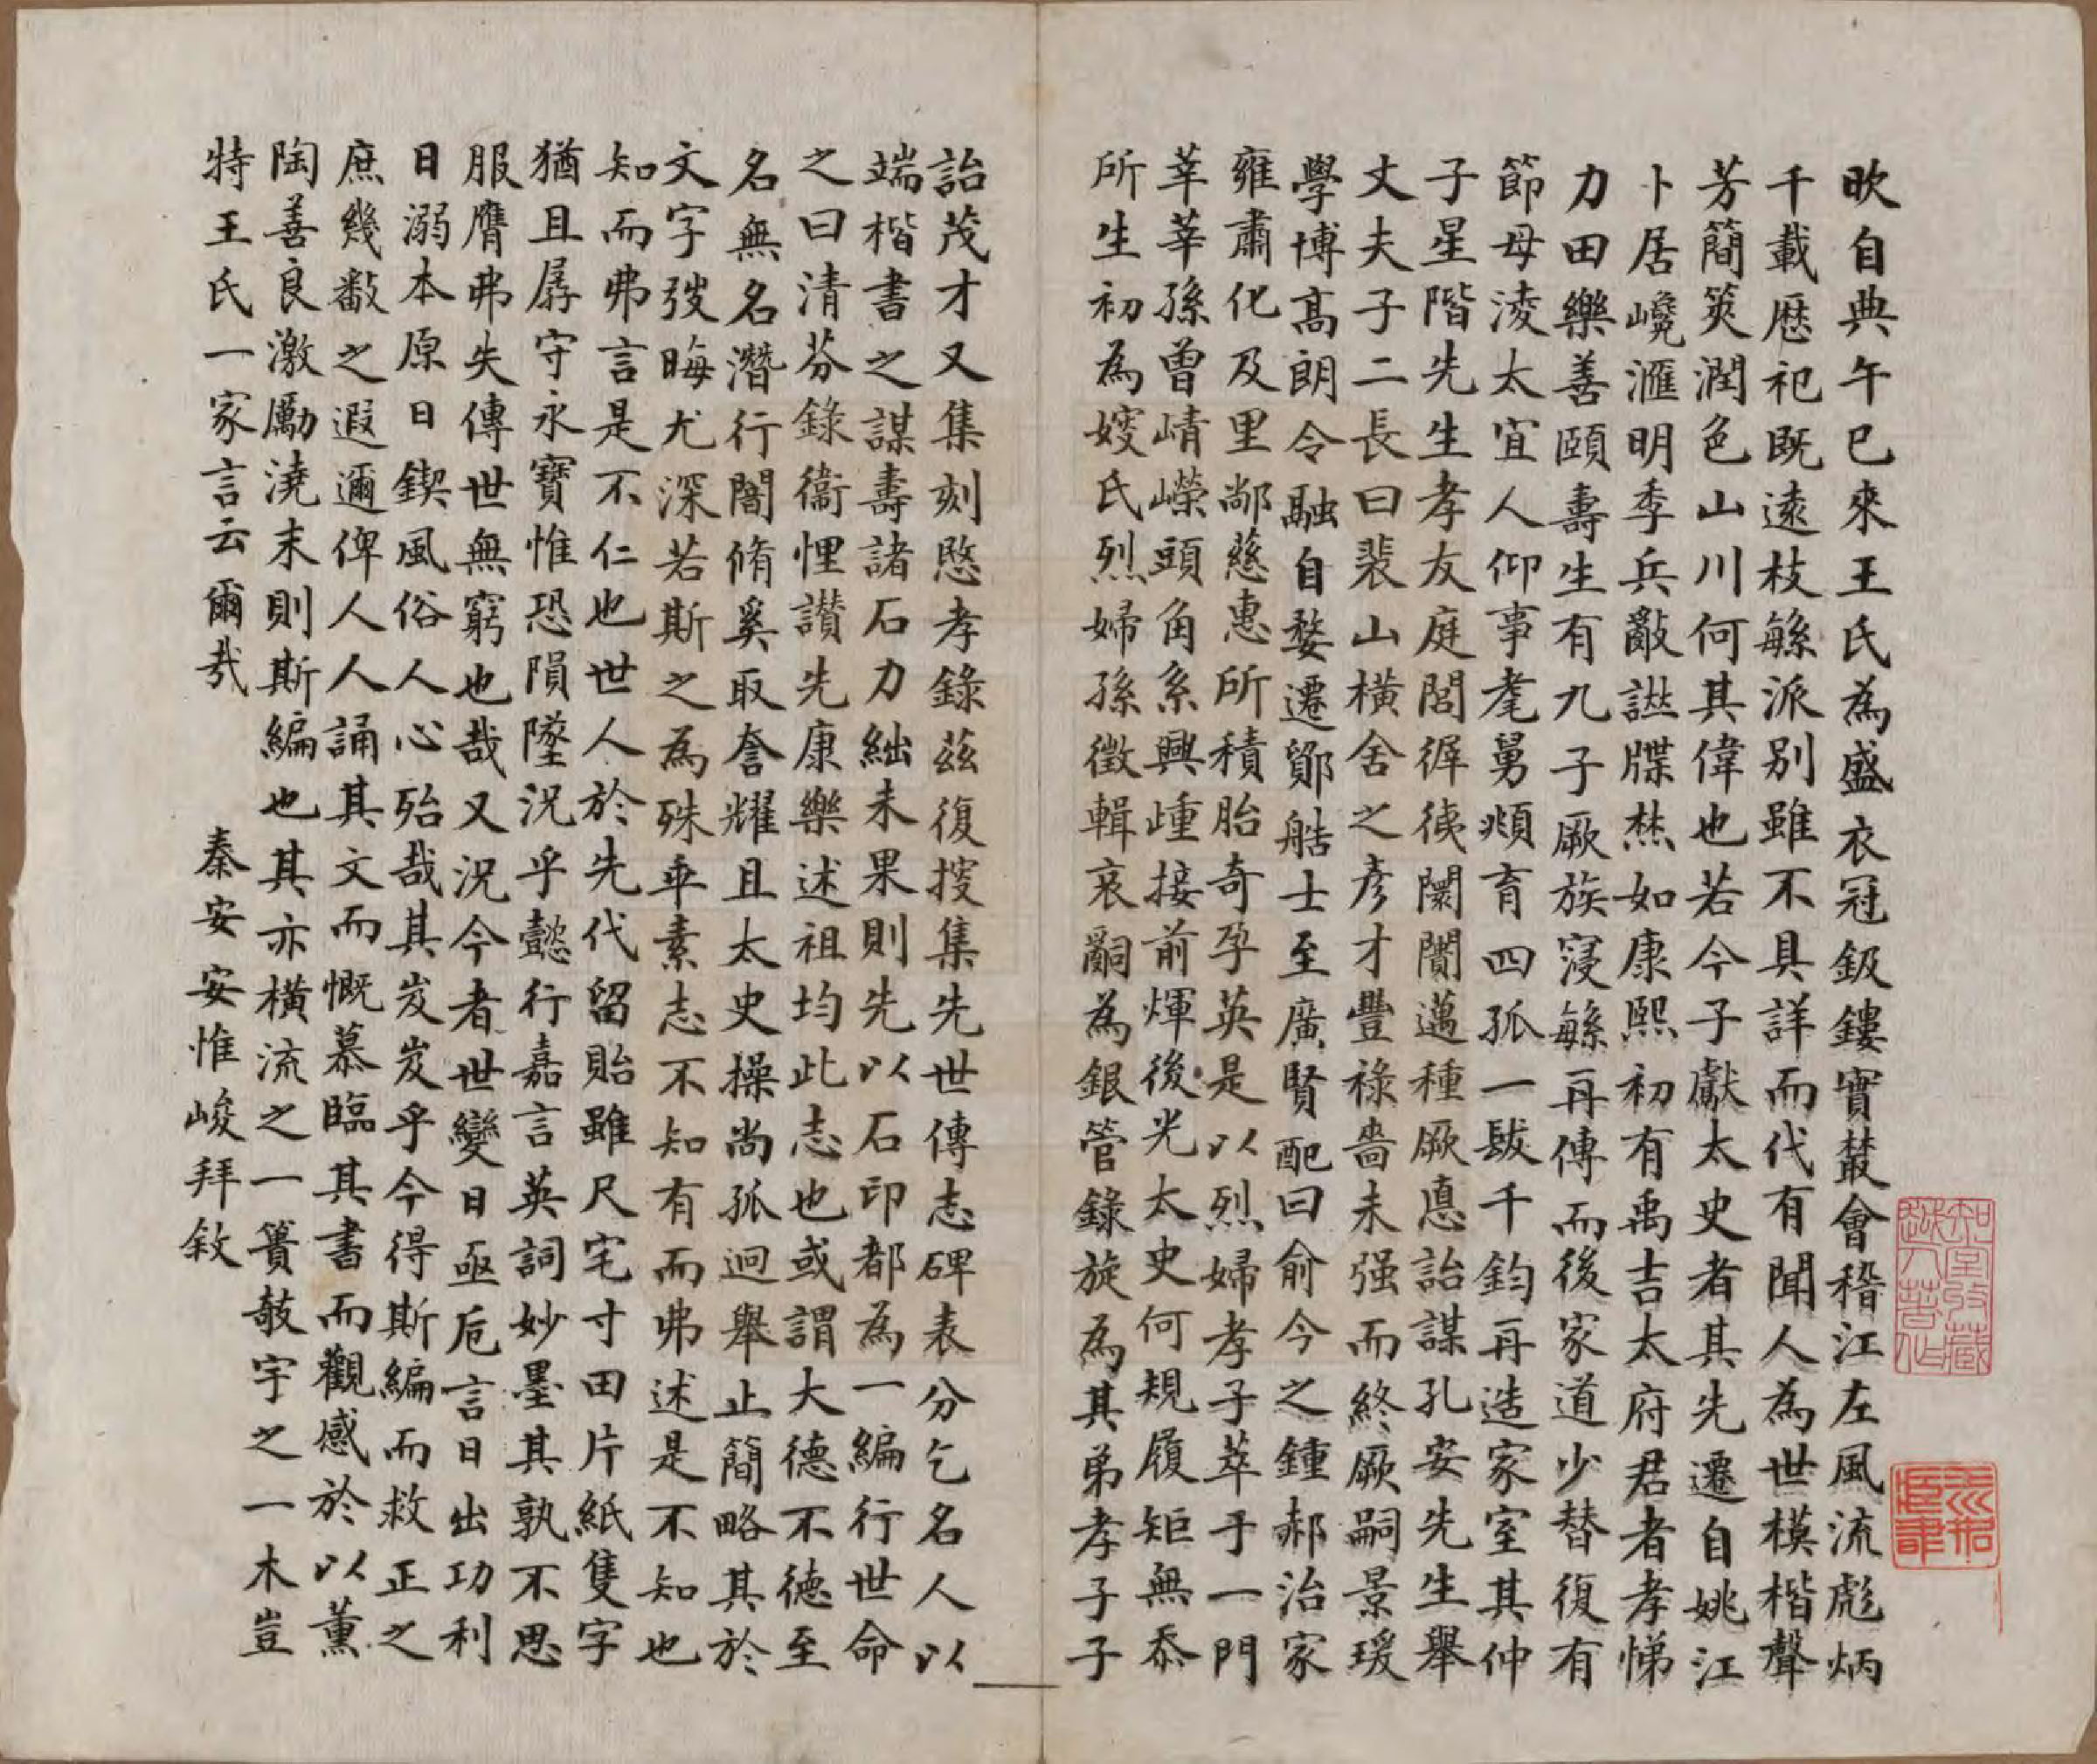 欥自典午已來王氏為盛衣冠鈒鏤實藂會稽江左風流彪炳
千載歷祀既遠枝緐派別雖不具詳而代有聞人為世模楷聲
芳簡筴潤色山川何其偉也若今子獻太史者其先遷自姚江
卜居巉滙明季兵歊譜牒㷊如康熙初有禹吉太府君者孝悌
力田樂善頤壽生有九子厥族寖緐再傳而後家道少替復有
節母淩太宜人仰事耄舅頫育四孤一髮千鈞再造家室其仲
子星階先生孝友庭閭徲徺闤闠邁種厥悳詒謀孔安先生舉
丈夫子二長曰裴山橫舍之彥才豐祿嗇未强而終厥嗣景瑗
學博髙朗令融自婺遷鄞皓士至廣賢配曰俞今之鍾郝治家
雍肅化及里鄰慈惠所積胎奇孕英是以烈婦孝子萃于一門
莘莘孫曾崝嶸頭角系興踵接前煇後光太史何規履矩無忝
所生初為嫂氏烈婦孫徵輯哀嗣為銀管錄旋為其弟孝子子
詒茂才又集刻愍孝錄茲復搜集先世傳志碑表分乞名人以
端楷書之謀壽諸石力絀未果則先以石印都為一編行世命
之曰清芬錄衞悝讃先康樂述祖均此志也或謂大德不徳至
名無名潛行闇脩奚取夸耀且太史操尚孤迥舉止簡略其於
文字弢晦尤深若斯之為殊乖素志不知有而弗述是不知也
知而弗言是不仁也世人於先代留貽雖尺宅寸田片紙隻字
猶且孱守永寶惟恐隕墜況乎懿行嘉言英詞妙墨其孰不思
服膺弗失傳世無窮也哉又況今者世變日亟卮言日出功利
日溺本原日鍥風俗人心殆哉其岌岌乎今得斯編而救正之
庶幾㪤之遐邇俾人人誦其文而慨慕臨其書而觀感於以薰
陶善良激勵澆末則斯編也其亦橫流之一簣敧宇之一木豈
特王氏一家言云爾㢤
秦安安惟峻拜敘
知堂收藏
越人著作